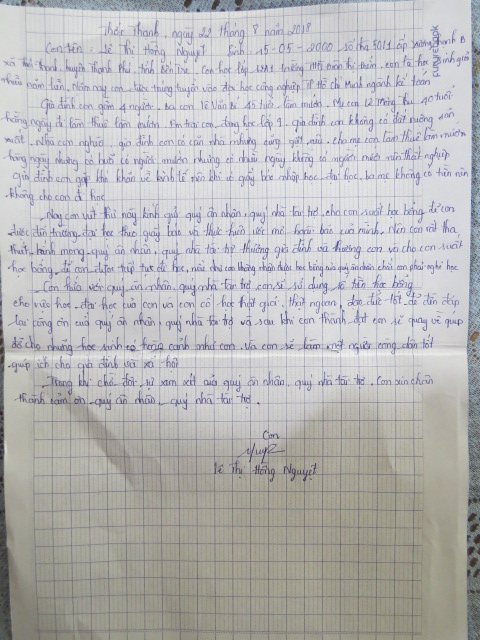 Thới Thạnh, ngày 22 tháng 8 năm 2018
Con tên: Lê Thị Hồng Nguyệt Sinh 15-05-2000, số nhà 501 ấp Xương Thạnh B
xã Thới Thạnh huyện Thạnh Phú, tỉnh Bến Tre, con học lớp 12A1 trường, con là học sinh giỏi
nhiều năm liền. Năm nay con được trúng tuyển vào đại học công nghiệp TP Hồ Chí Minh ngành kế toán
Gia đình con gồm 4 người. Ba con Lê Văn Bi 45 tuổi làm mướn. Mẹ con 40 tuổi
hằng ngày đi làm thuê làm mướn. Em trai con đang học lớp 9. gia đình con không có đất ruộng sản
xuất. Nhà con nghèo, gia đình con có căn nhà nhưng cũng cha mẹ con làm thuê làm mướn
hằng ngày nhưng có buổi có người mướn nhưng có nhiều ngày không có người mướn nên thất nghiệp
gia đình con gặp khó khăn về kinh tế nên khi có giấy báo nhập học đại học, ba mẹ không có tiền nên
không cho con đi học
Nay con viết thư này kính gửi quý ân nhân, quý nhà tài trợ, cho con suất học bổng để con
được đến trường đại học theo giấy báo và thực hiện ước mơ hoài bão của mình. Nên con rất tha
thiết, kính mong quý ân nhân, quý nhà tài trợ thương gia đình và thương con và cho con suất
học bổng, để con được tiếp tục đi học, nếu như con không nhận được học bổng của quý ân nhân chắc con phải nghỉ học
Con hứa với quý ân nhân, quý nhà tài trợ con sẽ sử dụng số tiền học bổng
cho việc học đại học của con và con cố học thật giỏi, thật ngoan, đạo đức tốt để đền đáp
lại công ơn của quý ân nhân, quý nhà tài trợ và sau khi con thành đạt con sẽ quay về giúp
đỡ cho những học sinh có hoàn cảnh như con và con sẽ làm một người công dân tốt
giúp ích cho gia đình và xã hội
Trong khi chờ đợi sự xem xét của quý ân nhân, quý nhà tài trợ, con xin chân
thành cảm ơn quý ân nhân, quý nhà tài trợ.
Con
Lê Thị Hồng Nguyệt